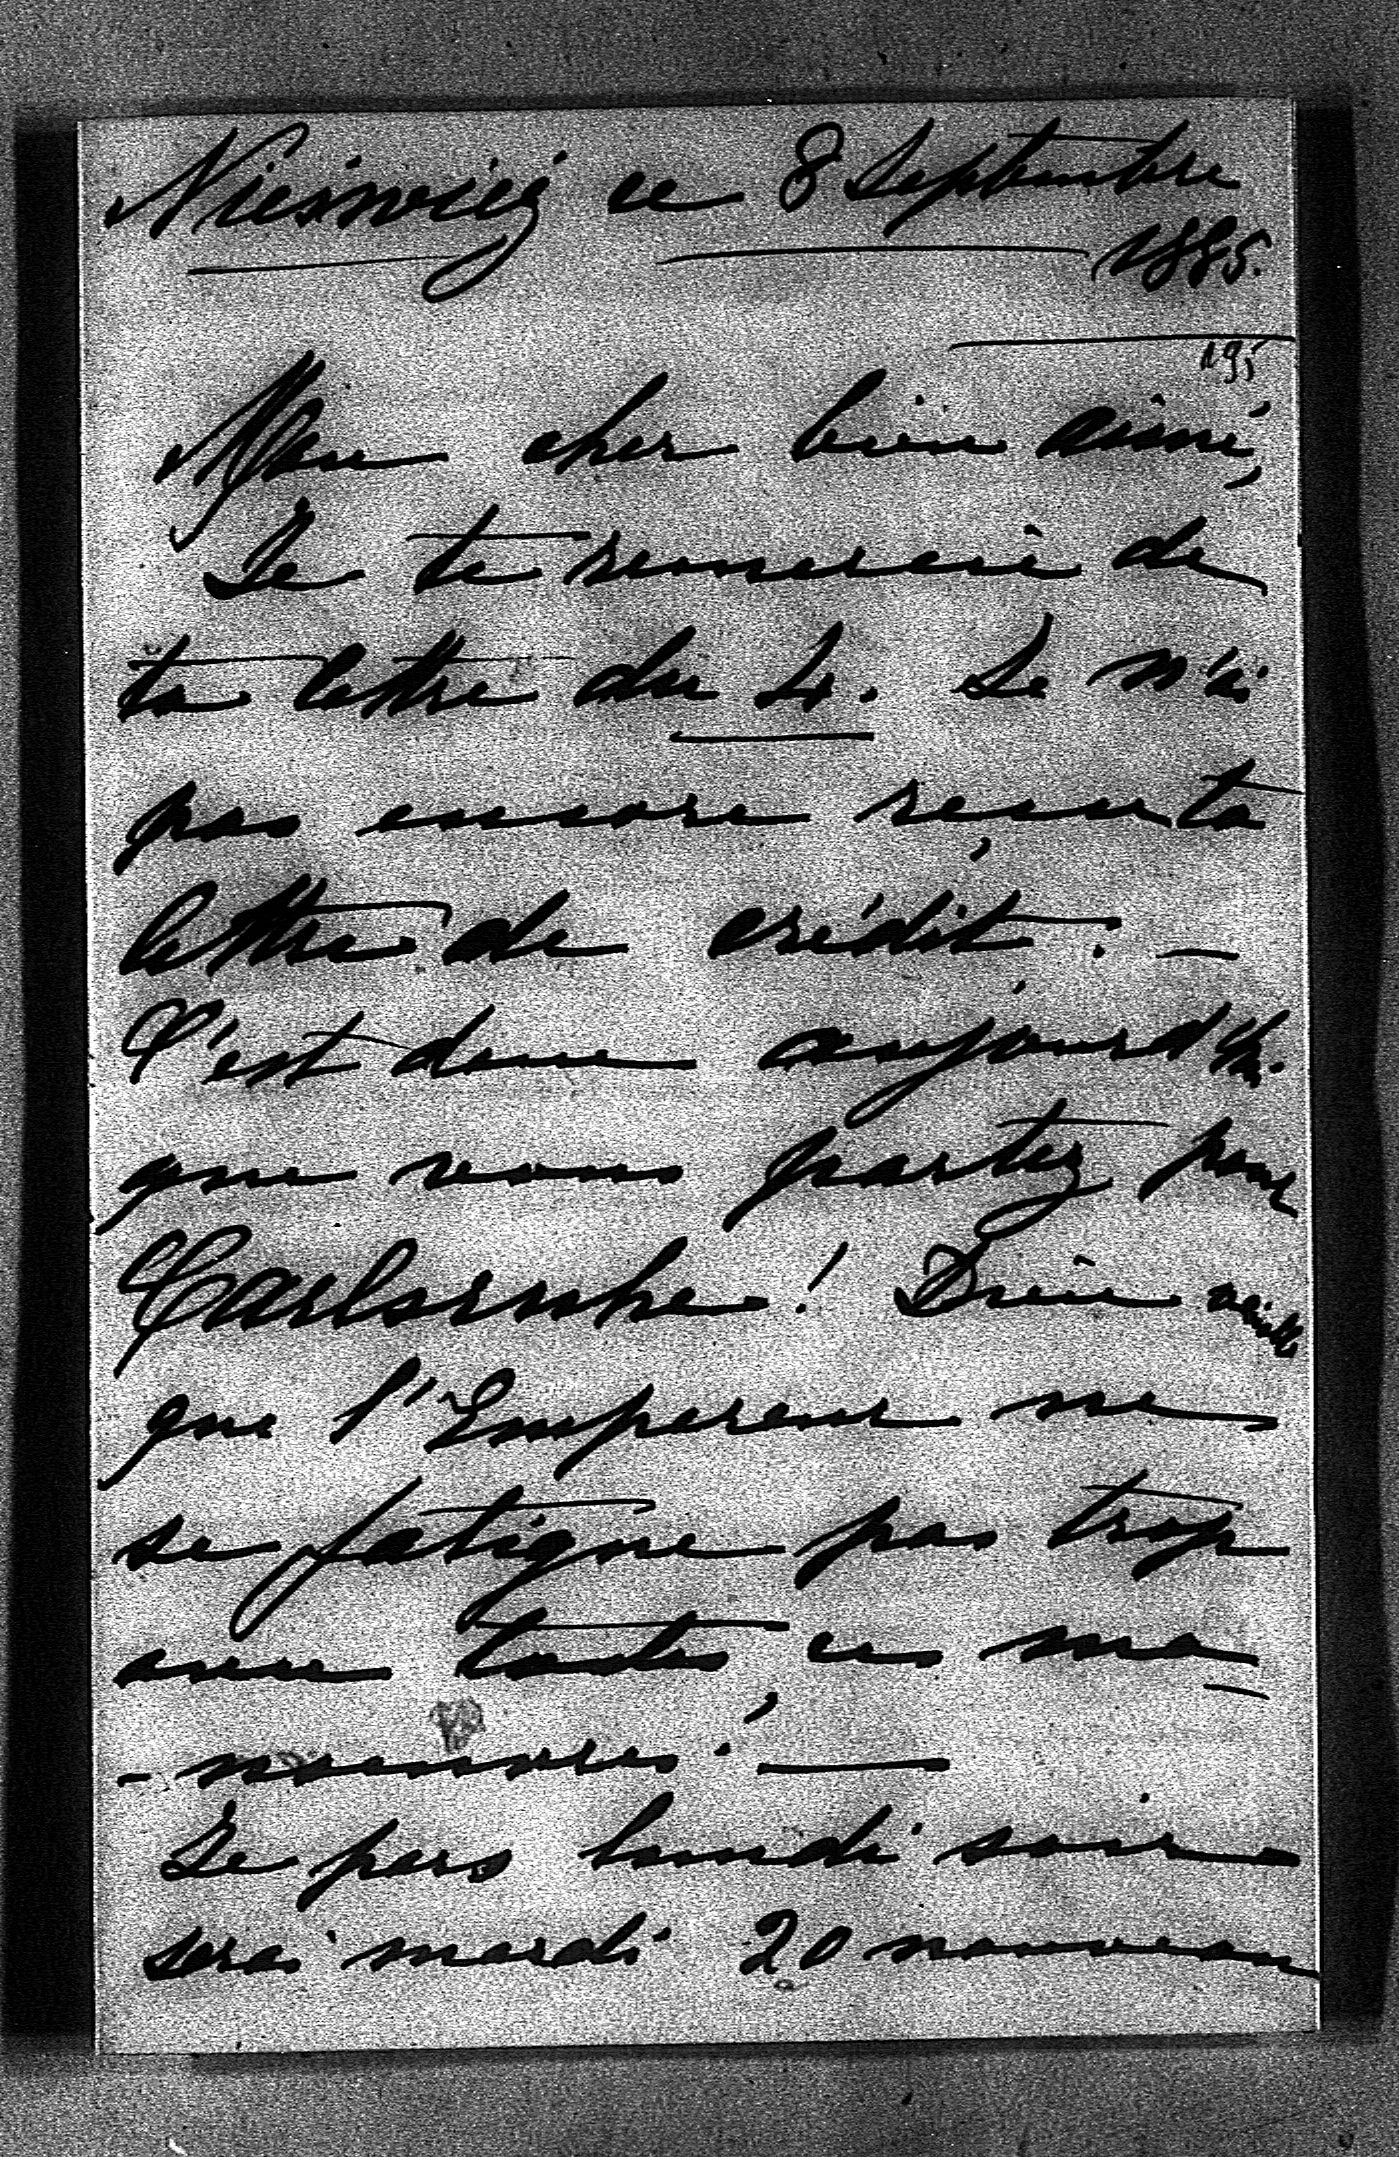 Nieswiez ce 8 Septembre
1885.
195
Mon cher bien aimé,
Je te remercie de
ta lettre du 4. Je n'ai
pas encore reçu ta
lettre de crédit. —
C'est donc aujourd'hui
que vous partez pour
Carlsruhe! Dieu veuille
que l'Empereur ne
se fatigue pas trop
avec toutes ces ma-
-noeuvres. —
Je pars lundi soir
serai mardi 20 nouveau